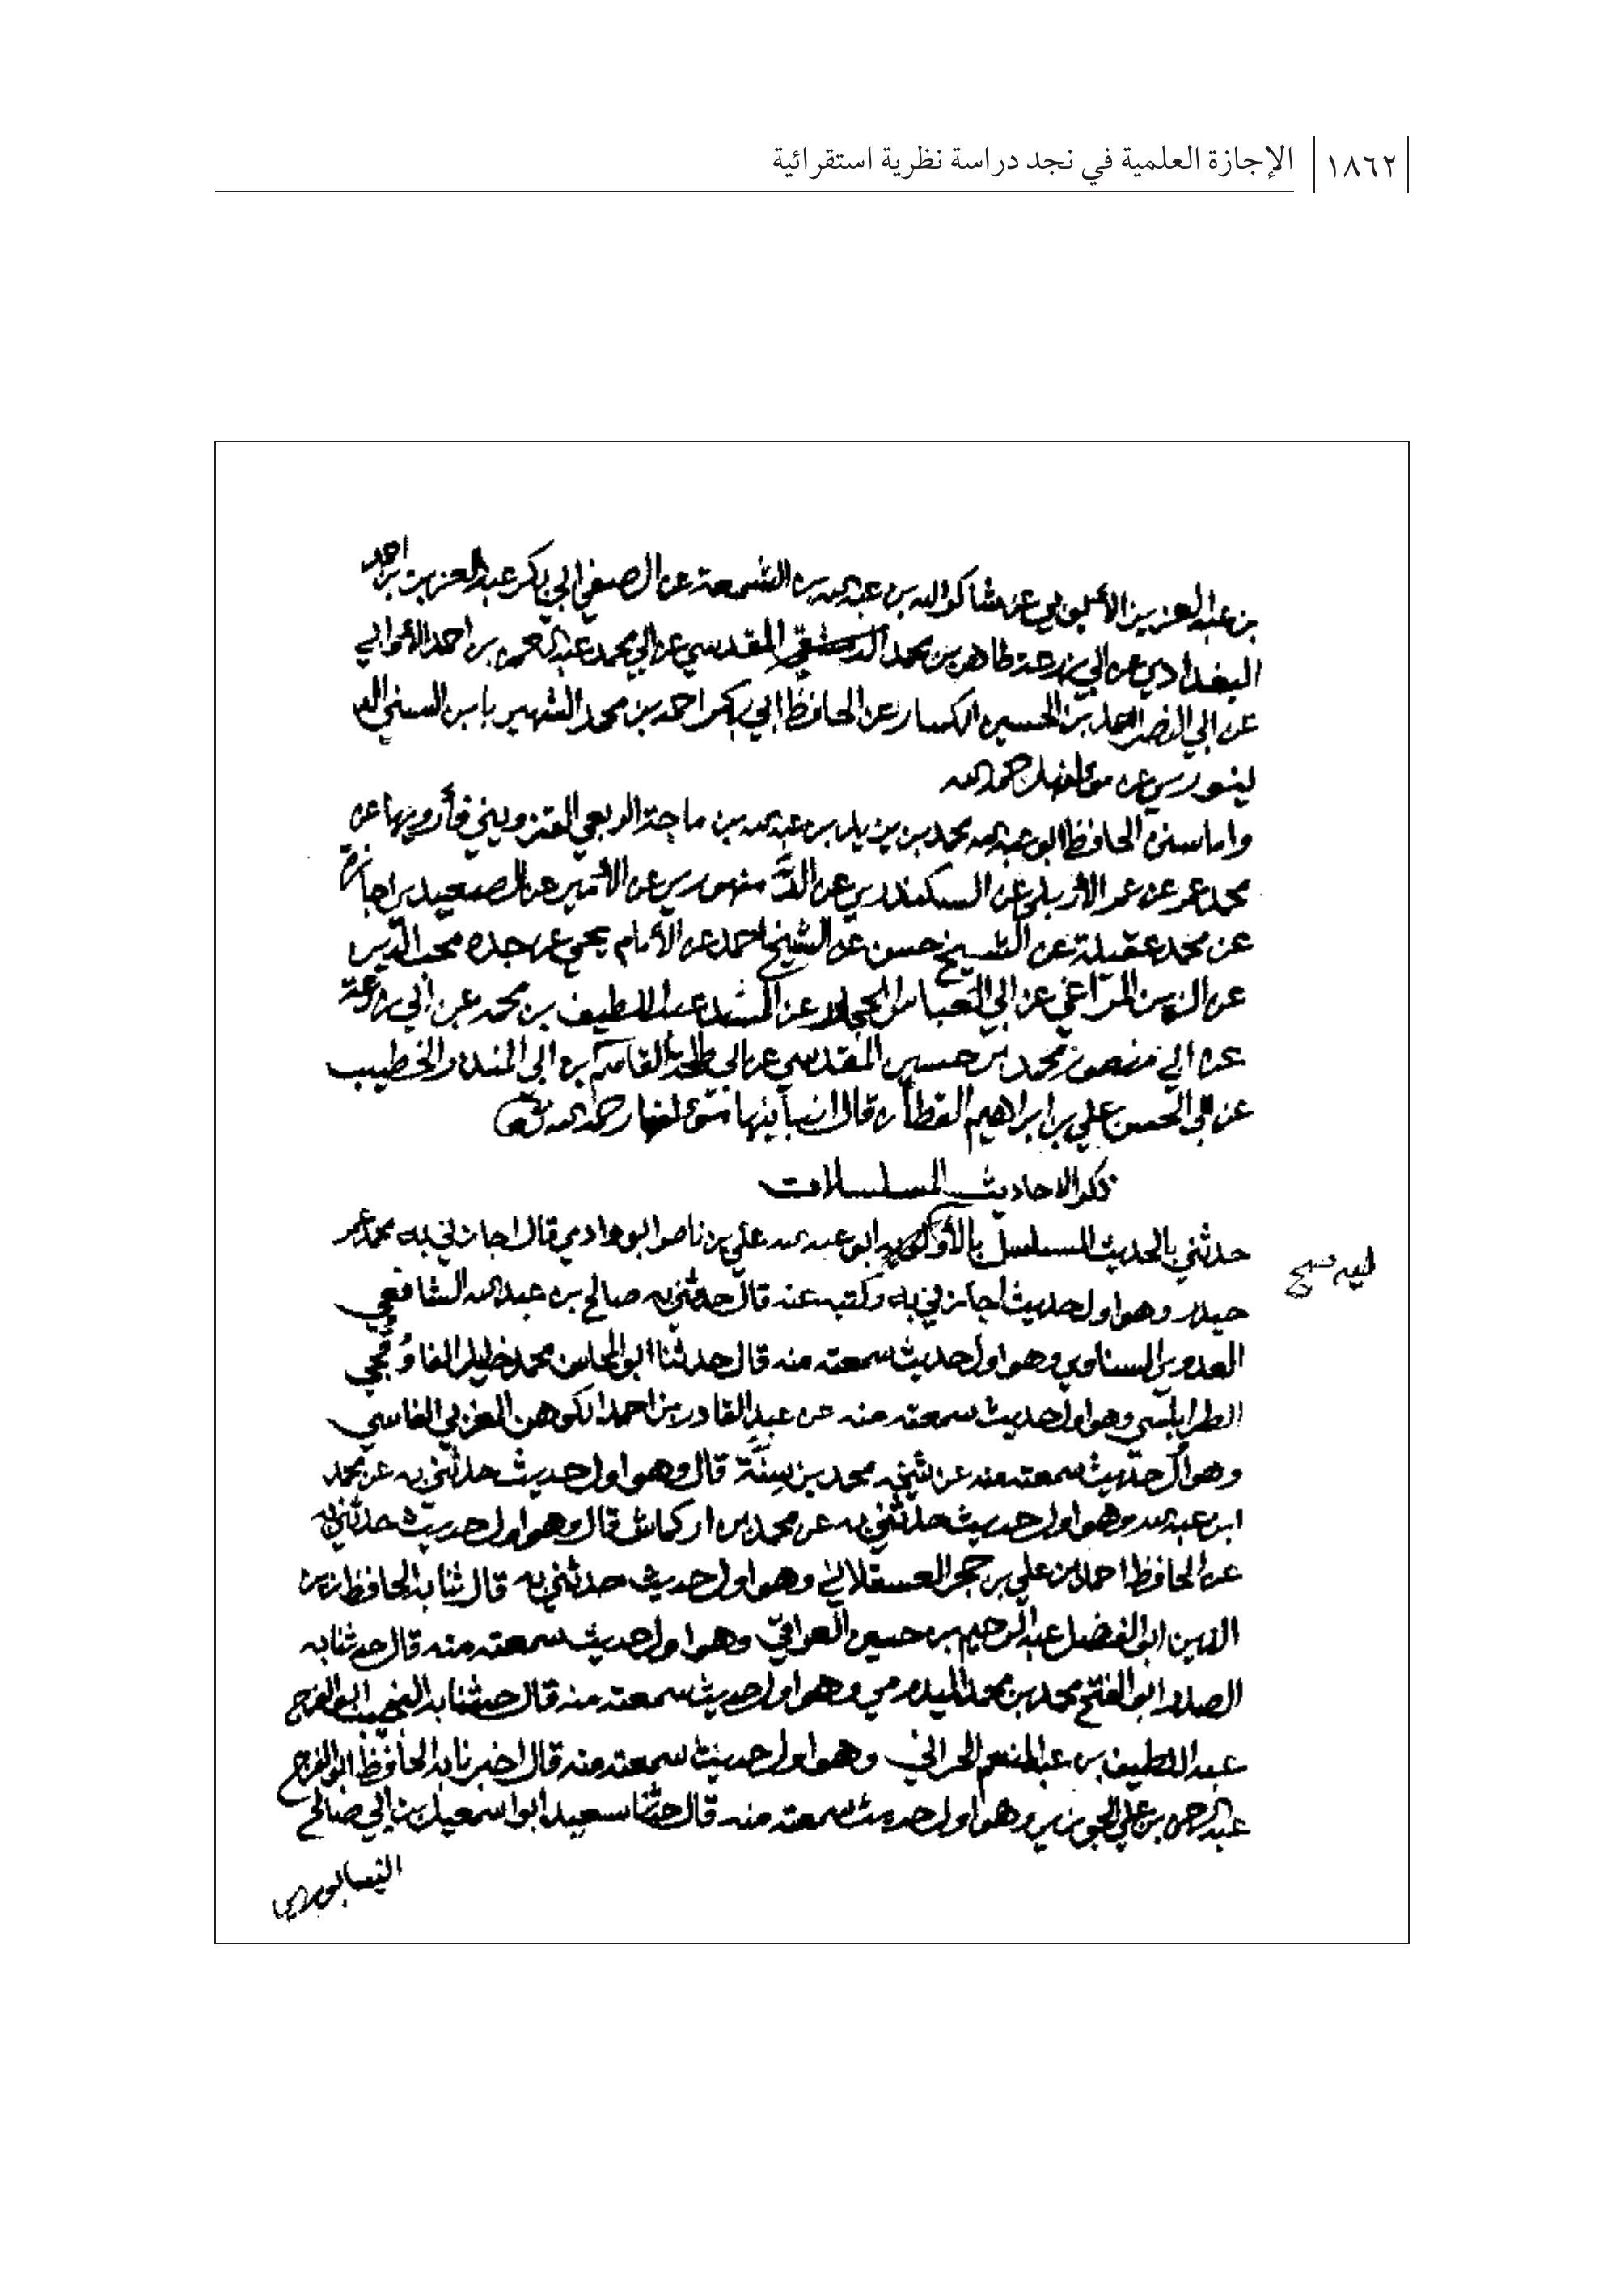 ١٨٦٢ الإجازة العلمية في نجد دراسة نظرية استقرائية
بن عبد العزيز عن شاكر الله بن عبد الله بن الشمعة عن الصفي ابي بكر عبد العزيز بن احمد
البغدادي عن ابي زرعة طاهر بن محمد المقدسي عن ابي محمد بن احمد
عن ابي النصر احمد بن الحسين الكسار عن الحافظ ابي بكر احمد بن محمد الشهير بابن السني الد
ينوري عن مؤلفها رحمه الله
واما سنن الحافظ ابو عبد الله محمد بن يزيد بن عبد الله بن ماجة الربعي القزويني فأرويها عن
محمد عمر عن عمر الأربلي عن السكندري عن الدَّمنهوري عن الأمير عن الصعيدي اجازة
عن محمد عقيلة عن الشيخ حسن عن الشيخ احمد عن الأمام يحيى عن جده محب الدين
عن الزين المراغي عن ابي العباس الحجار عن المسند عبد اللطيف بن محمد عن ابي زرعة
عن ابي منصور محمد بن حسين المقدسي عن ابي طلحة القاسم بن ابي المنذر الخطيب
عن ابي الحسن علي بن ابراهيم القطان قال انبأ بها مؤلفها رحمه الله
ذكر الاحاديث المسلسلات
حدثني بالحديث المسلسل بالأولية ابو عبد الله علي بن ناصر ابو وادي قال اجازني به محمد عمر
ليه صح
حيدر وهو اول حديث اجازني به وكتبه عنه قال حدثني به صالح بن عبد الله الشافعي
العدوي السناوي وهو اول حديث سمعته منه قال حدثنا ابو المحاسن محمد خليل القاوقجي
الطرابلسي وهو اول حديث سمعته منه عن عبد القادر بن احمد الكوهن المغربي الفاسي
وهو اول حديث سمعته منه عن شيخه محمد بن سِنَّة قال وهو اول حديث حدثني به عن محمد
ابن عبد الله وهو اول حديث حدثني به عن محمد بن اركماش قال وهو اول حديث حدثني به
عن الحافظ احمد بن علي بن حجر العسقلاني وهو اول حديث حدثني به قال ثنا به الحافظ زين
الدين ابو الفضل عبد الرحيم بن حسين العراقي وهو اول حديث سمعته منه قال حدثنا به
الصدر ابو الفتح محمد بن محمد الميدومي وهو اول حديث سمعته منه قال حدثنا به النجيب ابو الفرج
عبد اللطيف بن عبد المنعم الحراني وهو اول حديث سمعته منه قال اخبرنا به الحافظ ابو الفرج
عبد الرحمن بن علي الجوزي وهو اول حديث سمعته منه قال حدثنا سعيد ابو اسمعيل بن ابي صالح
النيسابوري